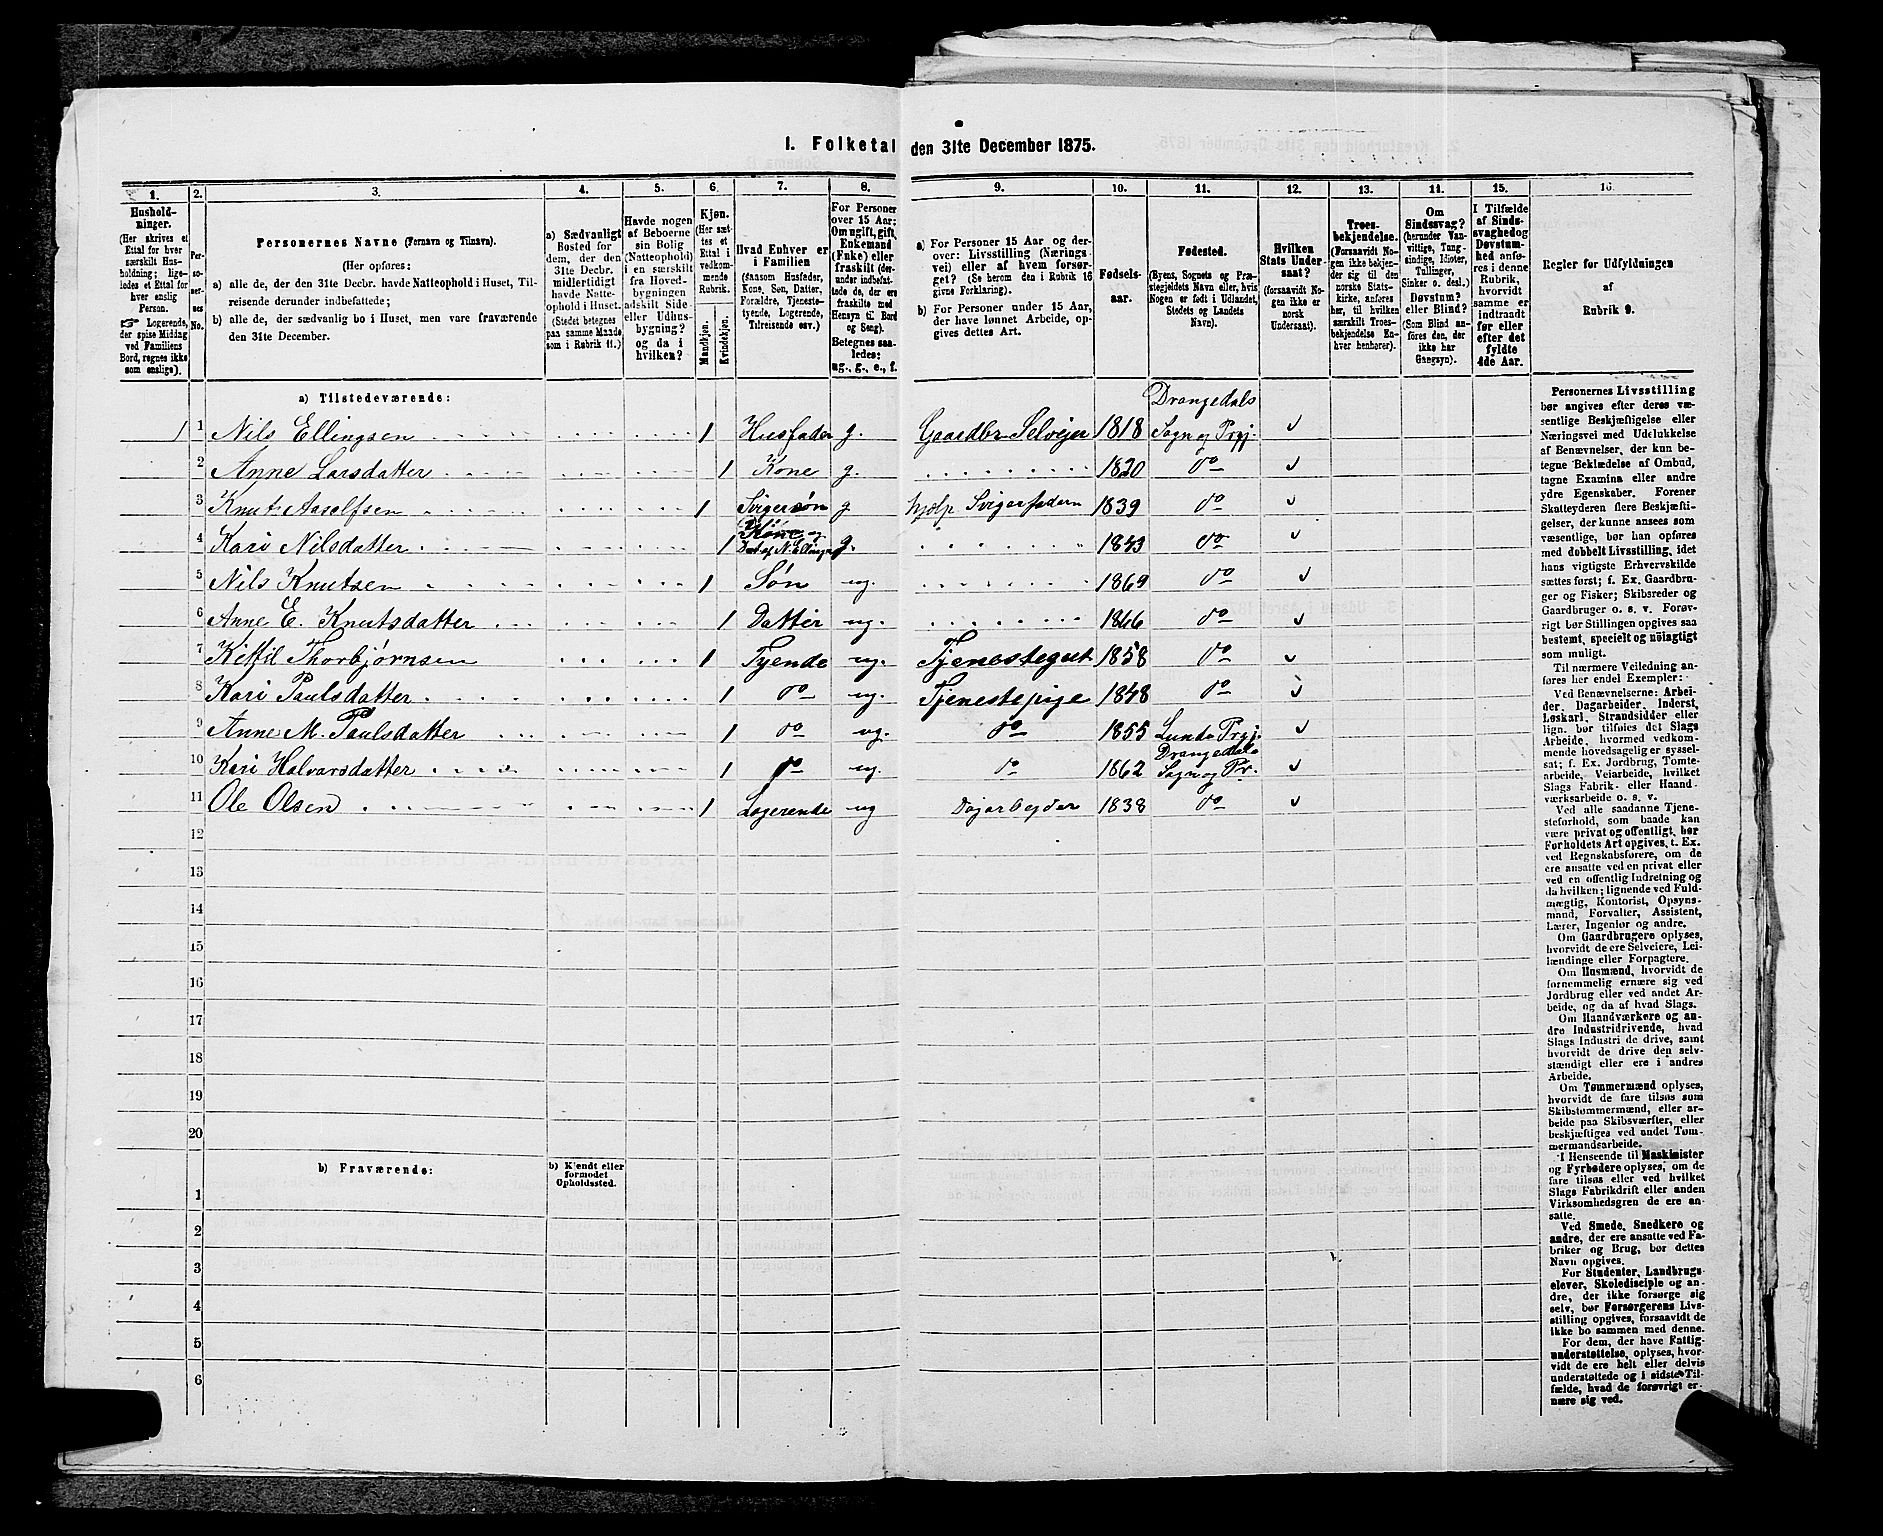 I. Folketal den 31te December 1875.
1. 2. 3. 4. 5. 6. 7. 8. 9. 10. 11. 12. 13. 14. 15. 16.
Hushold-
ninger.
(Her skrives et
Ettal for hver
særskilt Hus-
holdning; lige-
ledes et Ettal for
hver enslig
Person.
☞ Logerende,
der spise Middag
ved Familiens
Bord, regnes ikke
som enslige).
Per-
so-
ner-
nes
No.
Personernes Navne (Fornavn og Tilnavn).
(Her opføres:
a) alle de, der den 31te Decbr. havde Natteophold i Huset, Til-
reisende derunder indbefattede;
b) alle de, der sædvanlig bo i Huset, men vare fraværende
den 31te December.
a) Sædvanligt
Bosted for
dem, der den
31te Decbr.
midlertidigt
havde Natte-
ophold i Huset.
(Stedet betegnes
paa samme Maade
som i Rubrik 11.)
Havde nogen
af Beboerne
sin Bolig
(Natteophold)
i en særskilt
fra Hoved-
bygningen
adskilt Side-
eller Udhus-
bygning?
og da i
hvilken?
Kjøn.
(Her sæt-
tes et
Ettal i
vedkom-
mende
Rubrik.
Mandkjøn.
Kvindekjøn.
Hvad Enhver er
i Familien
(saasom Husfader,
Kone, Søn, Datter,
Forældre, Tjeneste-
tyende, Logerende,
Tilreisende osv.)
For Personer
over 15 Aar:
Om ugift, gift,
Enkemand
(Enke) eller
fraskilt (der-
under indbefat-
tede de, der ere
fraskilte med
Hensyn til Bord
og Seng).
Betegnes saa-
ledes:
ug., g., e., f.
a) For Personer 15 Aar og der-
over: Livsstilling (Nærings-
vei) eller af hvem forsør-
get? (Se herom den i Rubrik 16
givne Forklaring).
b) For Personer under 15 Aar,
der have lønnet Arbeide, op-
gives dettes Art.
Fødsels-
aar.
Fødested.
(Byens, Sognets og Præ-
stegjeldets Navn eller, hvis
Nogen er født i Udlandet,
Stedets og Landets
Navn).
Hvilken
Stats Under-
saat?
(forsaavidt No-
gen ikke er
norsk
Undersaat).
Troes-
bekjendelse.
(Forsaavidt No-
gen ikke bekjen-
der sig til den
norske Stats-
kirke, anføres
her, til hvilken
særskilt Troes-
bekjendelse En-
hver henhører).
Om
Sindssvag?
(herunder Van-
vittige, Tung-
sindige, Idioter,
Tullinger,
Sinker o. desl.)
Døvstum?
eller Blind?
(Som Blind an-
føres den, der
ikke har
Gangsyn).
I Tilfælde
af Sinds-
svaghed og
Døvstum-
hed anfø-
res i denne
Rubrik,
hvorvidt
samme er
indtraadt
før eller
efter det
fyldte
4de Aar.
Regler for Udfyldningen
af
Rubrik 9.
a) Tilstedeværende:
1 1 Nils Ellingsen 1 Husfader g. Gaardbr Selveier 1818 Drangedals Sogn og Prgj.
2 Anne Larsdatter 1 Kone g. 1820 do
3 Knut Aaselfsen 1 Svigersøn g hjælp Svigerfadern 1839 do
4 Kari Nilsdatter 1 Kone og Dat af N. Ellings g. 1843 do
5 Nils Knutsen 1 Søn ug. 1869 do
6 Anne E. Knutsdatter 1 Datter ug. 1866 do
7 Kittil Thorbjørnsen 1 Tyende ug. Tjenestegut 1858 do
8 Kari Paulsdatter 1 do ug. Tjenestepige 1848 do
9 Anne M. Paulsdatter 1 do ug. do 1855 Lunde Prgj.
10 Kari Halvorsdatter 1 do ug. do 1862 Drangedals Sogn og Pr.
11 Ole Olsen 1 Logerende ug Dagarbeyder 1838 do
12
13
14
15
16
17
18
19
20
b) Fraværende:
b) Kjendt eller
formodet
Opholdssted.
1
2
3
4
5
6
Personernes Livsstilling
bør angives efter deres væ-
sentlige Beskjæftigelse eller
Næringsvei med Udelukkelse
af Benævnelser, der kun be-
tegne Beklædelse af Ombud,
tagne Examina eller andre
ydre Egenskaber. Forener
Skatteyderen flere Beskjæfti-
gelser, der kunne ansees som
væsentlige, bør han opføres
med dobbelt Livsstilling, idet
hans vigtigste Erhvervskilde
sættes først; f. Ex. Gaardbru-
ger og Fisker; Skibsreder og
Gaardbruger o. s. v. Forøv-
rigt bør Stillingen opgives saa
bestemt, specielt og nöiagtigt
som muligt.
Til nærmere Veiledning an-
føres her endel Exempler:
Ved Benævnelserne: Arbei-
der, Dagarbeider, Inderst,
Løskarl, Strandsidder eller
lign. bør tilføies det Slags
Arbeide, hvormed vedkom-
mende hovedsagelig er syssel-
sat; f. Ex. Jordbrug, Tomte-
arbeide, Veiarbeide, hvilket
Slags Fabrik- eller Haand-
værksarbeide o. s. v.
Ved alle saadanne Tjene-
steforhold, som baade kan
være privat og offentligt, bør
Forholdets Art opgives, t. Ex.
ved Regnskabsførere, om de
ere ansatte ved en privat eller
ved en offentlig Indretning og
da hvilken; lignende ved Fuld-
mægtig, Kontorist, Opsyns-
mand, Forvalter, Assistent,
Lærer, Ingeniør og andre.
Om Gaardbrugere oplyses,
hvorvidt de ere Selveiere, Lei-
lændinge eller Forpagtere.
Om Husmænd, hvorvidt de
fornemmelig ernære sig ved
Jordbrug eller ved andet Ar-
beide, og da af hvad Slags.
Om Haandværkere og an-
dre Industridrivende, hvad
Slags Industri de drive, samt
hvorvidt de drive den selv-
stændigt eller ere i andres
Arbeide.
Om Tømmermænd oplyses,
hvorvidt de fare tilsøs som
Skibstømmermænd, eller ar-
beide paa Skibsværfter, eller
beskjæftiges ved andet Tøm-
mermandsarbeide.
I Henseende til Maskinister
og Fyrbødere oplyses, om de
fare tilsøs eller ved hvilket
Slags Fabrikdrift eller anden
Virksomhedsgren de ere an-
satte.
Ved Smede, Snedkere og
andre, der ere ansatte ved Fa-
briker og Brug, bør dettes
Navn opgives.
For Studenter, Landbrugs-
elever, Skoledisciple og an-
dre, der ikke forsørge sig
selv, bør Forsørgerens Livs-
stilling opgives, forsaavidt de
ikke bo sammen med denne.
For dem, der have Fattig-
understøttelse, oplyses, hvor-
vidt de ere helt eller delvis
understøttede og i sidste Til-
fælde, hvad de forøvrigt er-
nære sig ved.